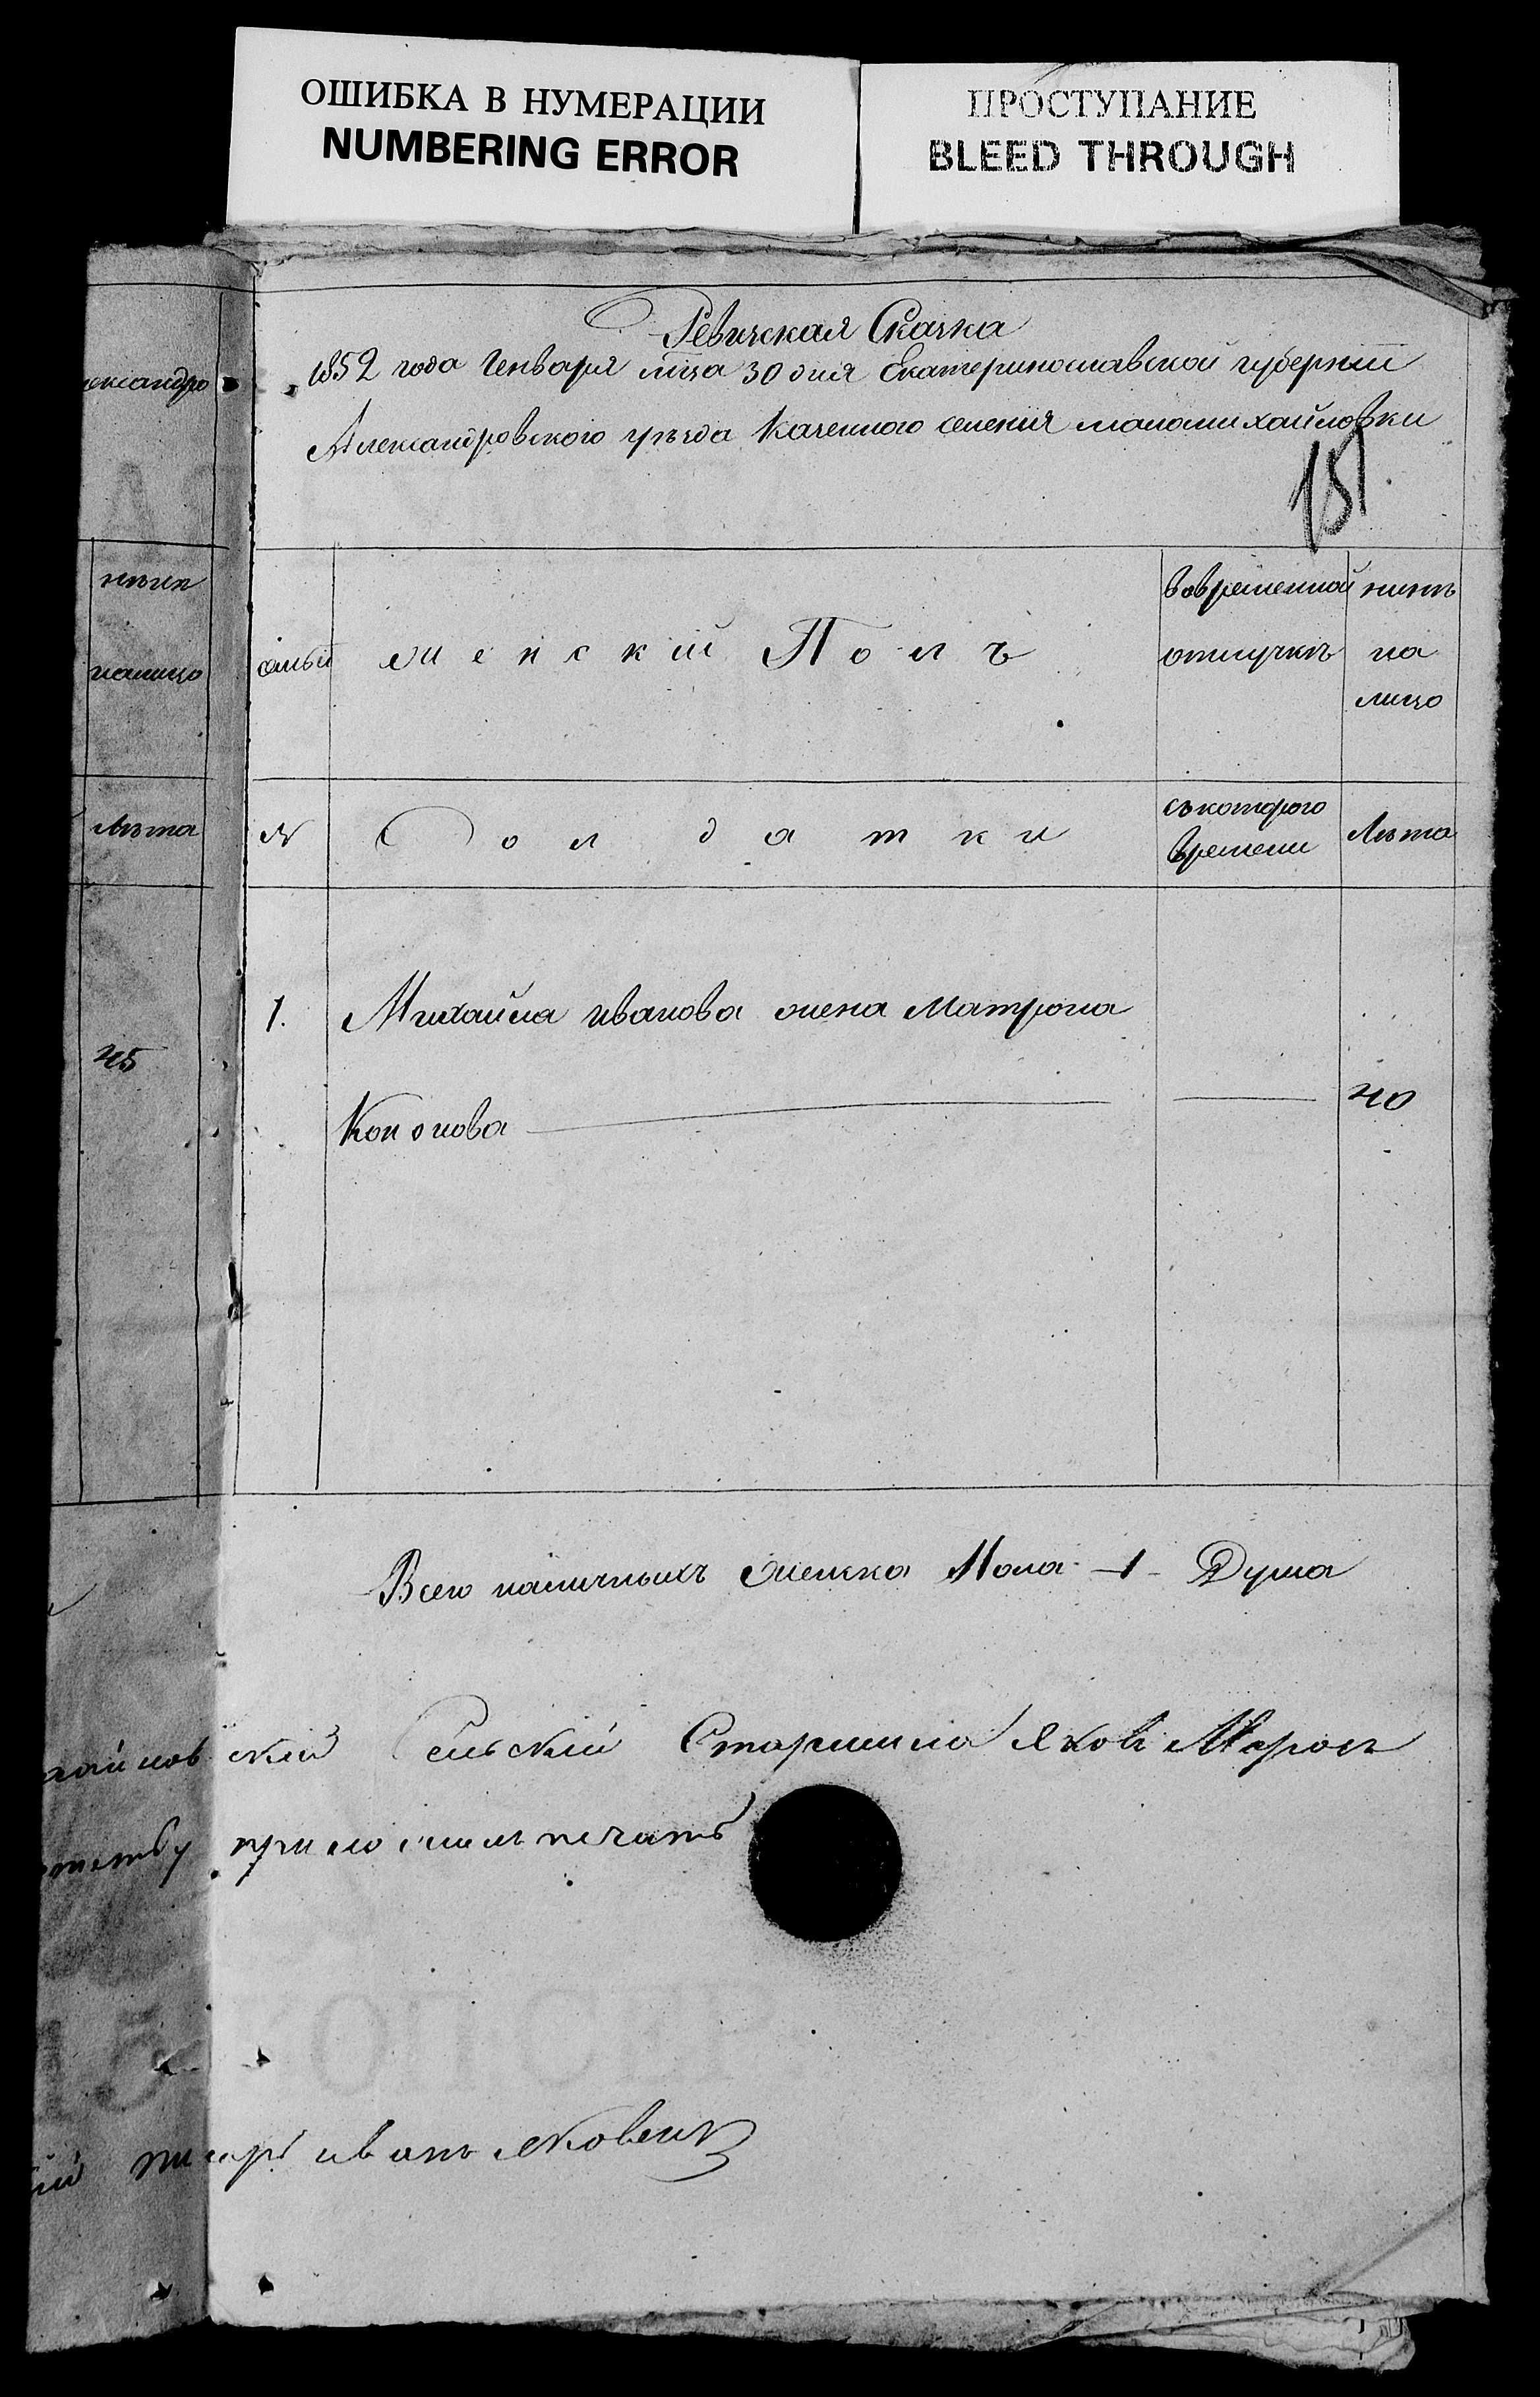 ОШИБКА В НУМЕРАЦИИ
NUMBERING ERROR
ПРОСТУПАНИЕ
BLEED THROUGH
Ревизская Сказка
1852 года Генваря м̃ца 30 дня Екатеринославской губернїи
Александровского уѣзда Казенного селения маломихайловки
151.
лександро
нынѣ
налицо
лѣта
45
семьи
женскїй Полъ
вовременной
отлучкѣ
нынѣ
на
лицо
N
Солдатки
съкоторого
времени
Лѣта
1. Михайла иванова жена Матрона
Кононова 40
Всего наличныхъ женска Пола 1 Душа
хайловский Сельский Старшина Яков Морозъ
приложилъ печать
писарь иванъ Яковенко